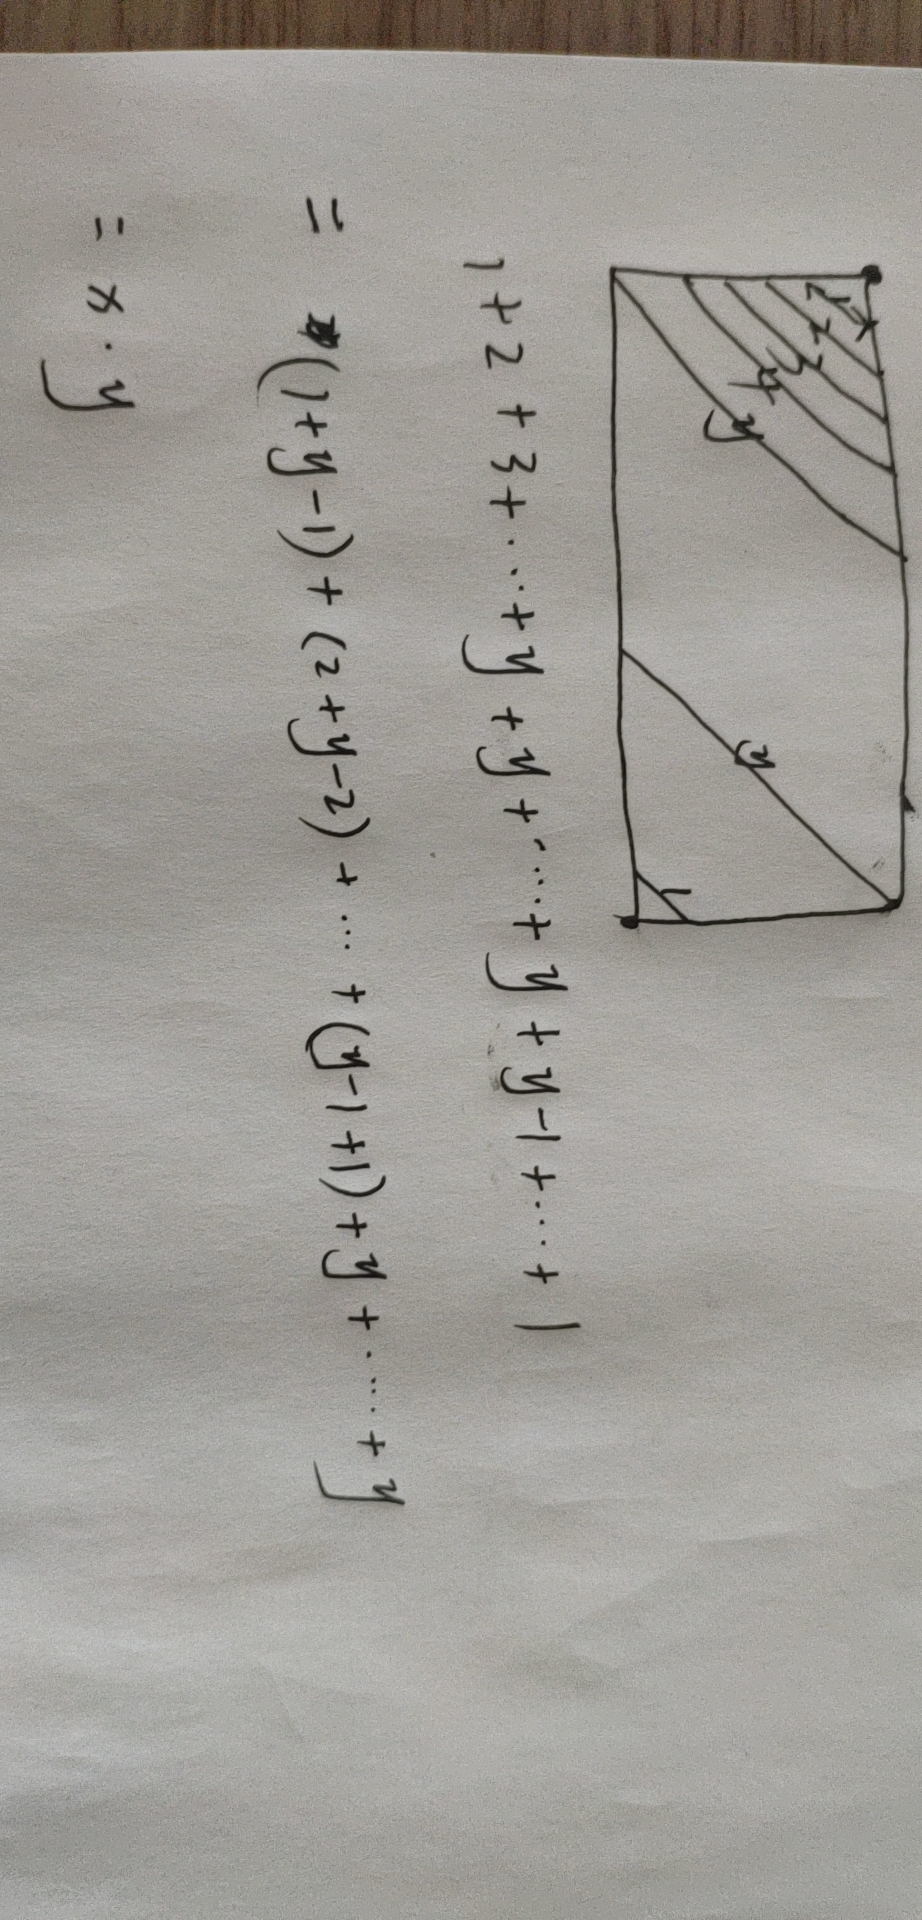 1 2 2 3 4 y y 1
1 + 2 + 3 + ... + y + y + .... + y + y - 1 + .... + 1
= (1 + y - 1) + (2 + y - 2) + ... + (y - 1 + 1) + y + .... + y
= x · y